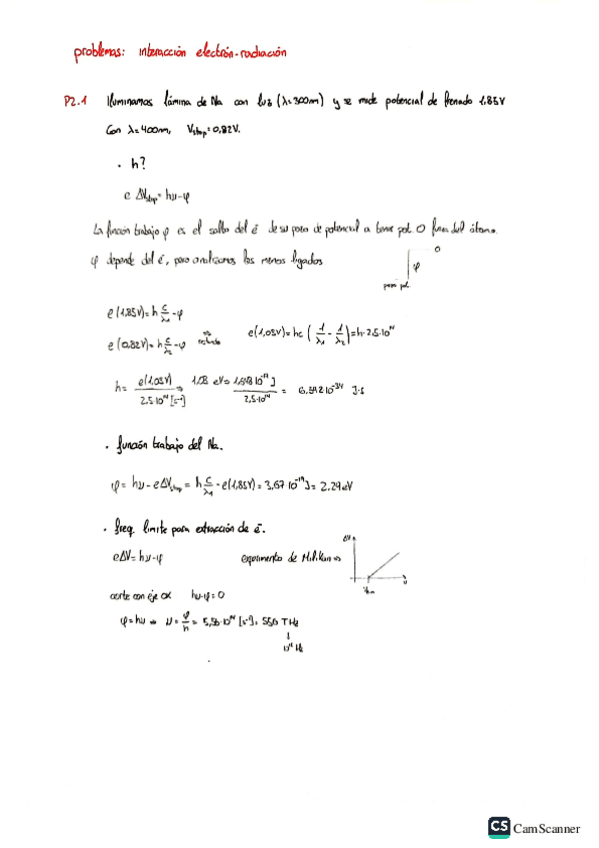 problemas: interacción electrón-radiación
P2.1 Iluminamos lámina de Na con luz (λ=300nm) y se mide potencial de frenado 1.85V
Con λ=400nm, Vstop=0,82V.
· h?
e ΔVstop = hν-φ
La función trabajo φ es el salto del e⁻ de su pozo de potencial a tener pot. 0 fuera del átomo.
φ depende del e⁻, pero analizamos los menos ligados
0
φ
pozo pot.
e(1,85V)=h c/λ₁ -φ
e(0,82V)=h c/λ₂ -φ ⇒ restando e(1,03V)=hc(1/λ₁ - 1/λ₂)=h·2.5·10¹⁴
h= e(1.03V)/2.5·10¹⁴[s⁻¹] ⇒ 1.03 eV= 1,648·10⁻¹⁹J/2,5·10¹⁴ = 6.592·10⁻³⁴ J·s
· función trabajo del Na.
φ= hν-eΔVstop = h c/λ₁ -e(1,85V)= 3,67·10⁻¹⁹J= 2.29eV
· freq. limite para extracción de e⁻.
eΔV=hν-φ experimento de Milikan ⇒
ΔV
corte con eje OX hν-φ=0
φ=hν ⇒ ν= φ/h = 5,56·10¹⁴ [s⁻¹]= 556 THz
10¹² Hz
CS CamScanner